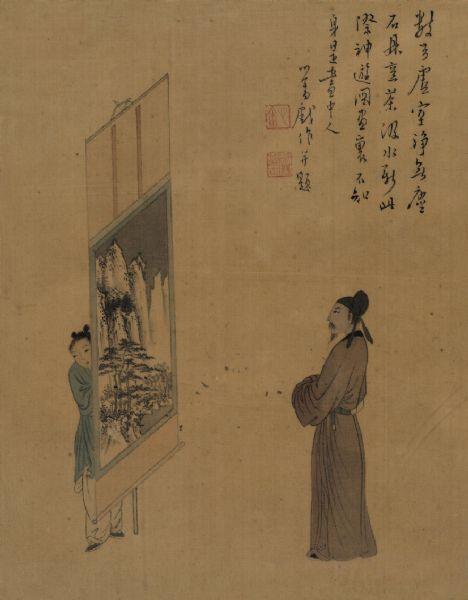 數弓虛室淨無塵
石鼎烹茶汲水新此
際神遊圖畫裏不知
身是畫中人
心畬戲作并題